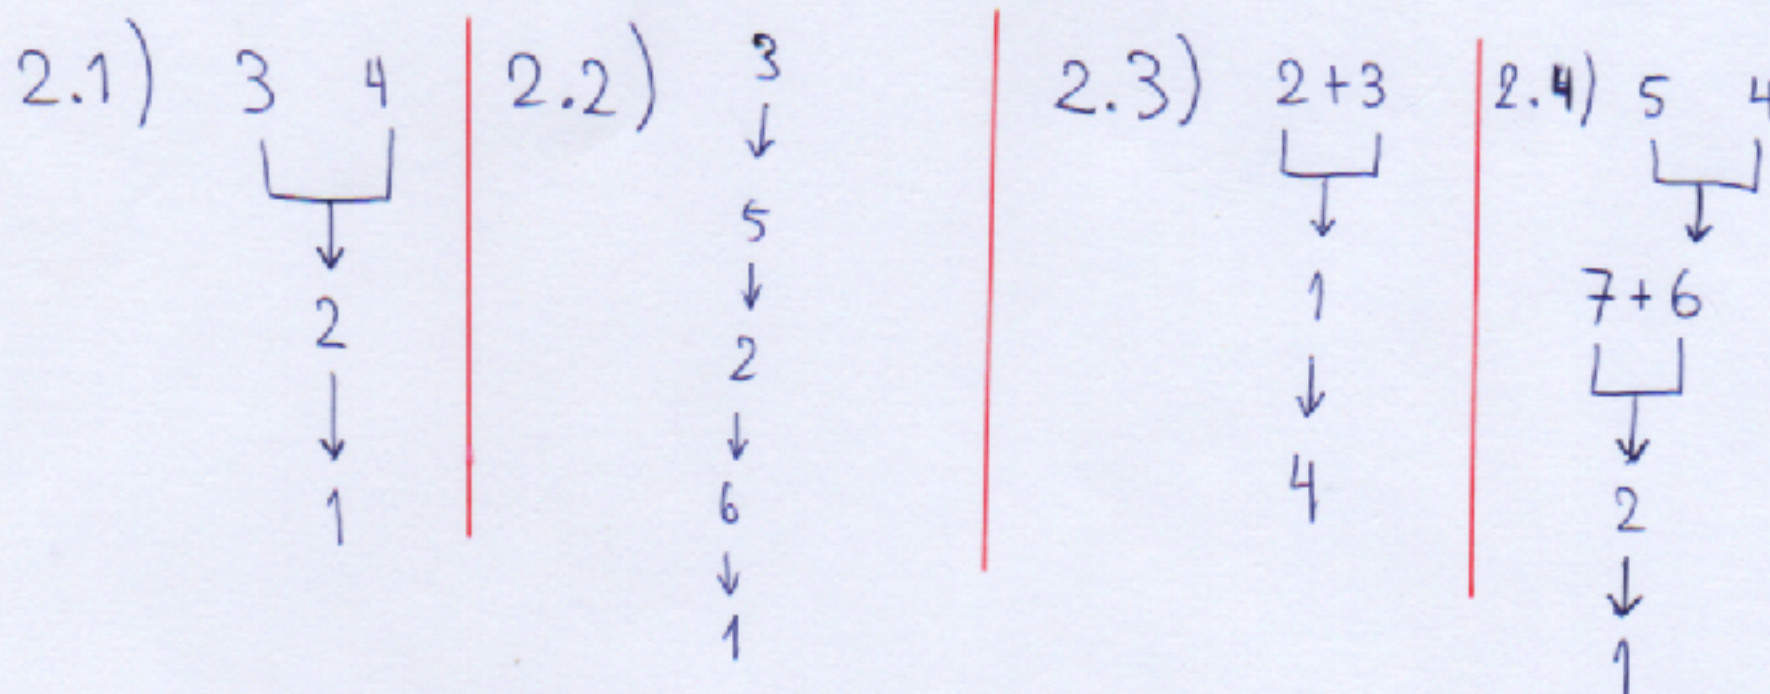 2.1) 3 4
2
1
2.2) 3
5
2
6
1
2.3) 2+3
1
4
2.4) 5 4
7+6
2
1